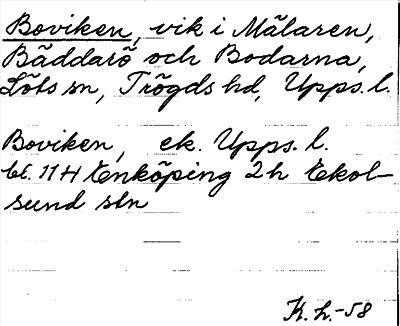 Boviken, vik i Mälaren,
Bäddarö och Bodarna,
Löts sn, Trögds hd, Upps. l.
Boviken, ek. Upps. l.
bl. 11H Enköping 2h Ekol-
sund sln
K. L. -58